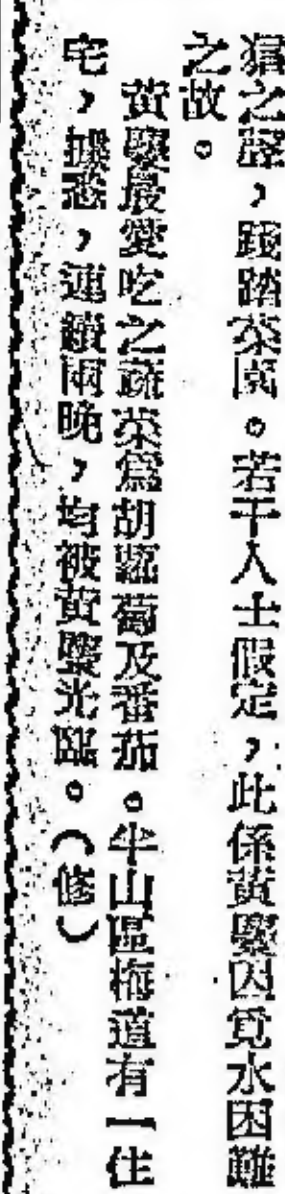 猖之辟，踐踏菜園。若干人士假定，此係黃麖因覓水困難
之故。
黃麖最愛吃之蔬菜爲胡蘿蔔及番茄。半山區梅道有一住
宅，據悉，連續兩晚，均被黃麖光臨。（修）